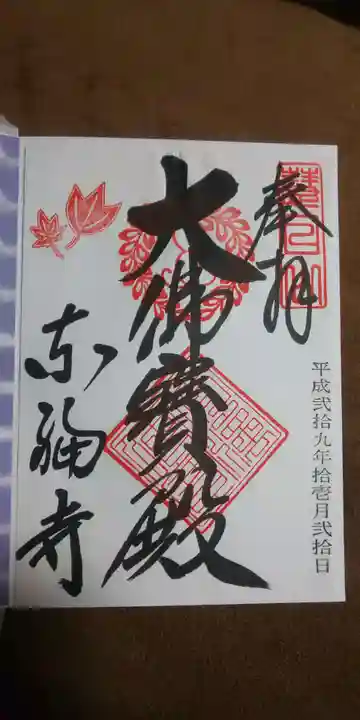 奉拝
慧日山
平成弐拾九年拾壱月弐拾日
大佛寳殿
東福寺